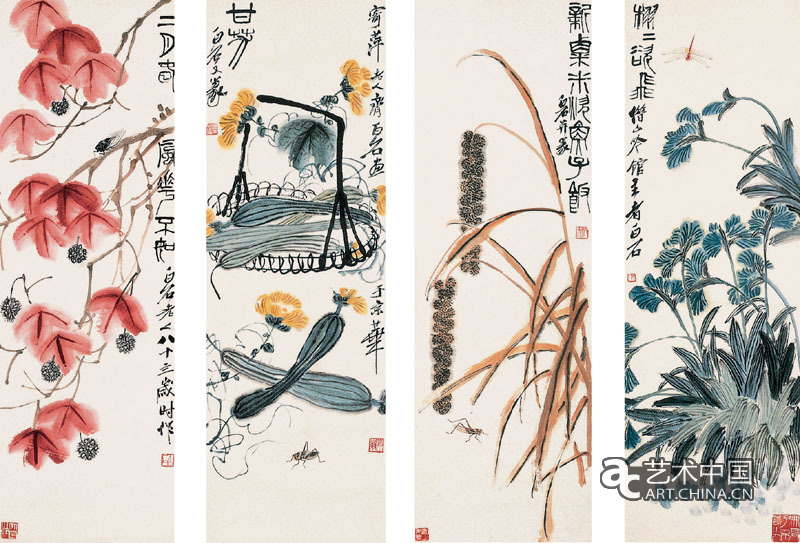 二月春風華不如
白石老人八十三歲時作
甘芳
白石又篆
寄萍老人齊白石畫
于京華
新粟米炊魚子飯
白石并篆
栩二欲飛
借山吟館主者白石
艺术中国
ART.CHINA.CN